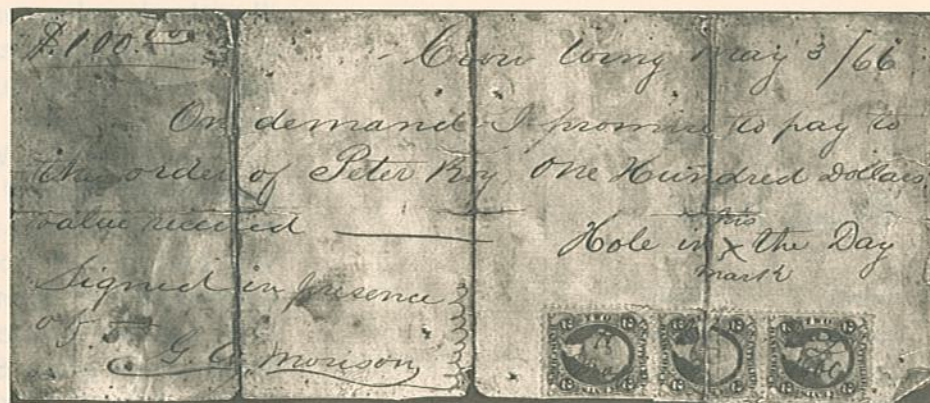 $100.00
Crow Wing May 3/66
On demand I promise to pay to
the order of Peter Roy One Hundred Dollars
value received
his
Hole in X the Day
mark
Signed in presence
of
G. W. Morison
TWO
TWO
TWO